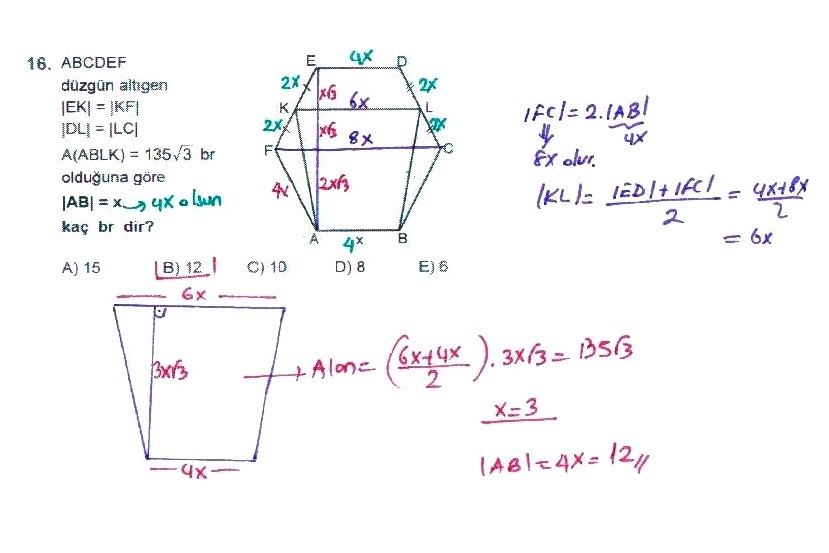 16. ABCDEF
düzgün altıgen
|EK| = |KF|
|DL| = |LC|
A(ABLK) = 135√3 br
olduğuna göre
|AB| = x → 4x olsun
kaç br dir?
A) 15 B) 12 C) 10 D) 8 E) 6
E 4x D
2x x√3 2x
K 6x L
2x x√3 2x
F 8x C
4x 2x√3
A 4x B
|FC| = 2.|AB|
4x
8x olur.
|KL| = |ED| + |FC| / 2 = 4x+8x / 2
= 6x
6x
3x√3
4x
Alan = (6x+4x / 2) . 3x√3 = 135√3
x = 3
|AB| = 4x = 12 //